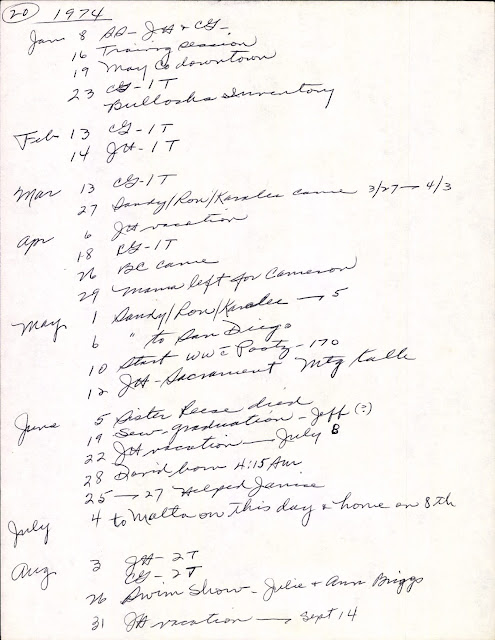 20 1974
Jan 8 BD - JH & CG -
16 Training session
19 May Co downtown
23 CG - 1T
Bullocks Inventory
Feb 13 CG - 1T
14 JH - 1T
Mar 13 CG - 1T
27 Sandy/Ron/Karalee came 3/27 → 4/3
Apr 6 JH vacation
18 CG - 1T
26 BC came
29 Mama left for Cameron
May 1 Sandy/Ron/Karalee → 5
6 " to San Diego
10 Start WW c̄ Pooty - 170
12 JH - Sacrament Mtg talk
June 5 Sister Reese died
19 Sem - graduation - Jeff (?)
22 JH vacation — July 8
28 David born 4:15 AM
25 → 27 Helped Janice
July 4 to Malta on this day & home on 8th
Aug 3 JH - 2T
CG - 2T
26 Swim Show - Julie & Ann Briggs
31 JH vacation → Sept 14